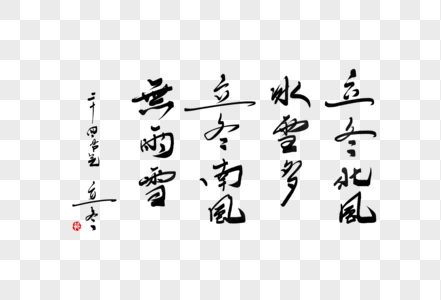 立冬北風
冰雪多
立冬南風
無雨雪
二十四节气 立冬